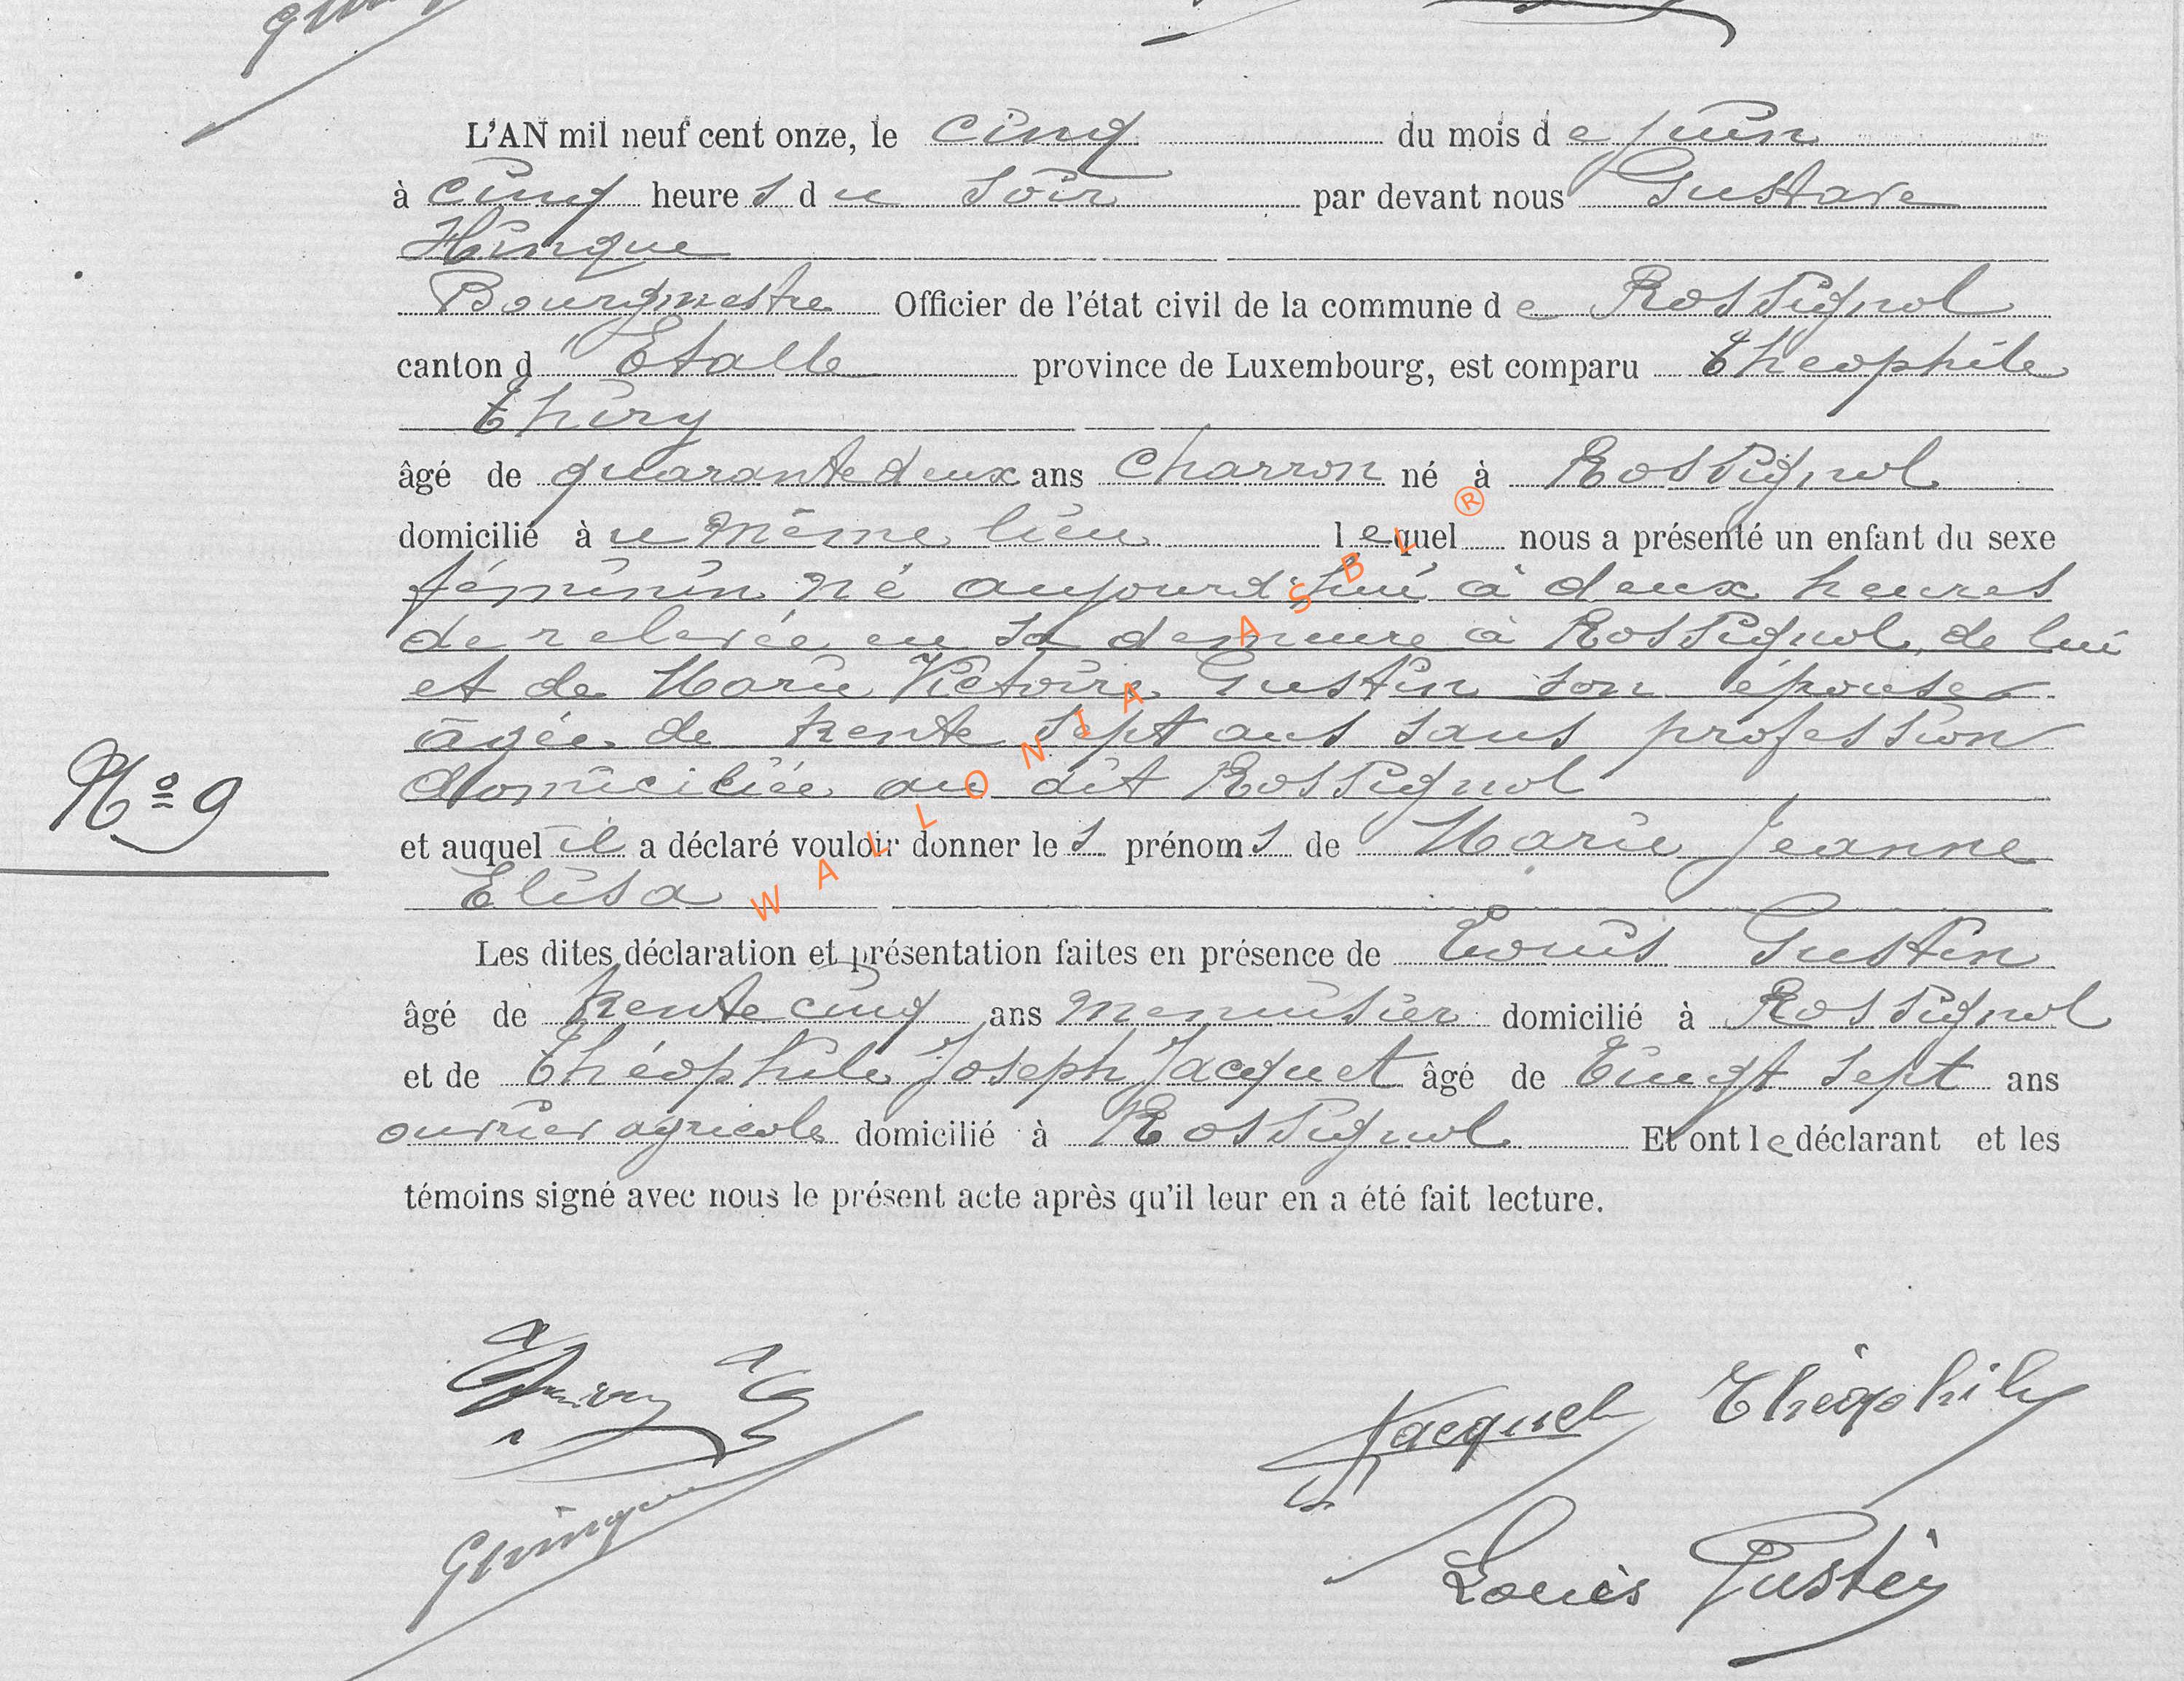 L'AN mil neuf cent onze, le cinq du mois de juin
à cinq heures du soir par devant nous Gustave
Hinque
Bourgmestre Officier de l'état civil de la commune de Rossignol
canton d'Etalle province de Luxembourg, est comparu Théophile
Thiry
âgé de quarante deux ans charron né à Rossignol
domicilié à u même lieu lequel nous a présenté un enfant du sexe
féminin né aujourd'hui à deux heures
de relevée en sa demeure à Rossignol, de lui
et de Marie Victoire Gustin son épouse
âgée de trente sept ans sans profession
domiciliée au dit Rossignol
N° 9
et auquel il a déclaré vouloir donner les prénoms de Marie Jeanne
Elisa
Les dites déclaration et présentation faites en présence de Louis Gustin
âgé de trente cinq ans menuisier domicilié à Rossignol
et de Théophile Joseph Jacquet âgé de vingt sept ans
ouvrier agricole domicilié à Rossignol Et ont le déclarant et les
témoins signé avec nous le présent acte après qu'il leur en a été fait lecture.
Thiry
Jacquet Théophile
GHinque
Louis Gustin
WALLONIA ASBL ®